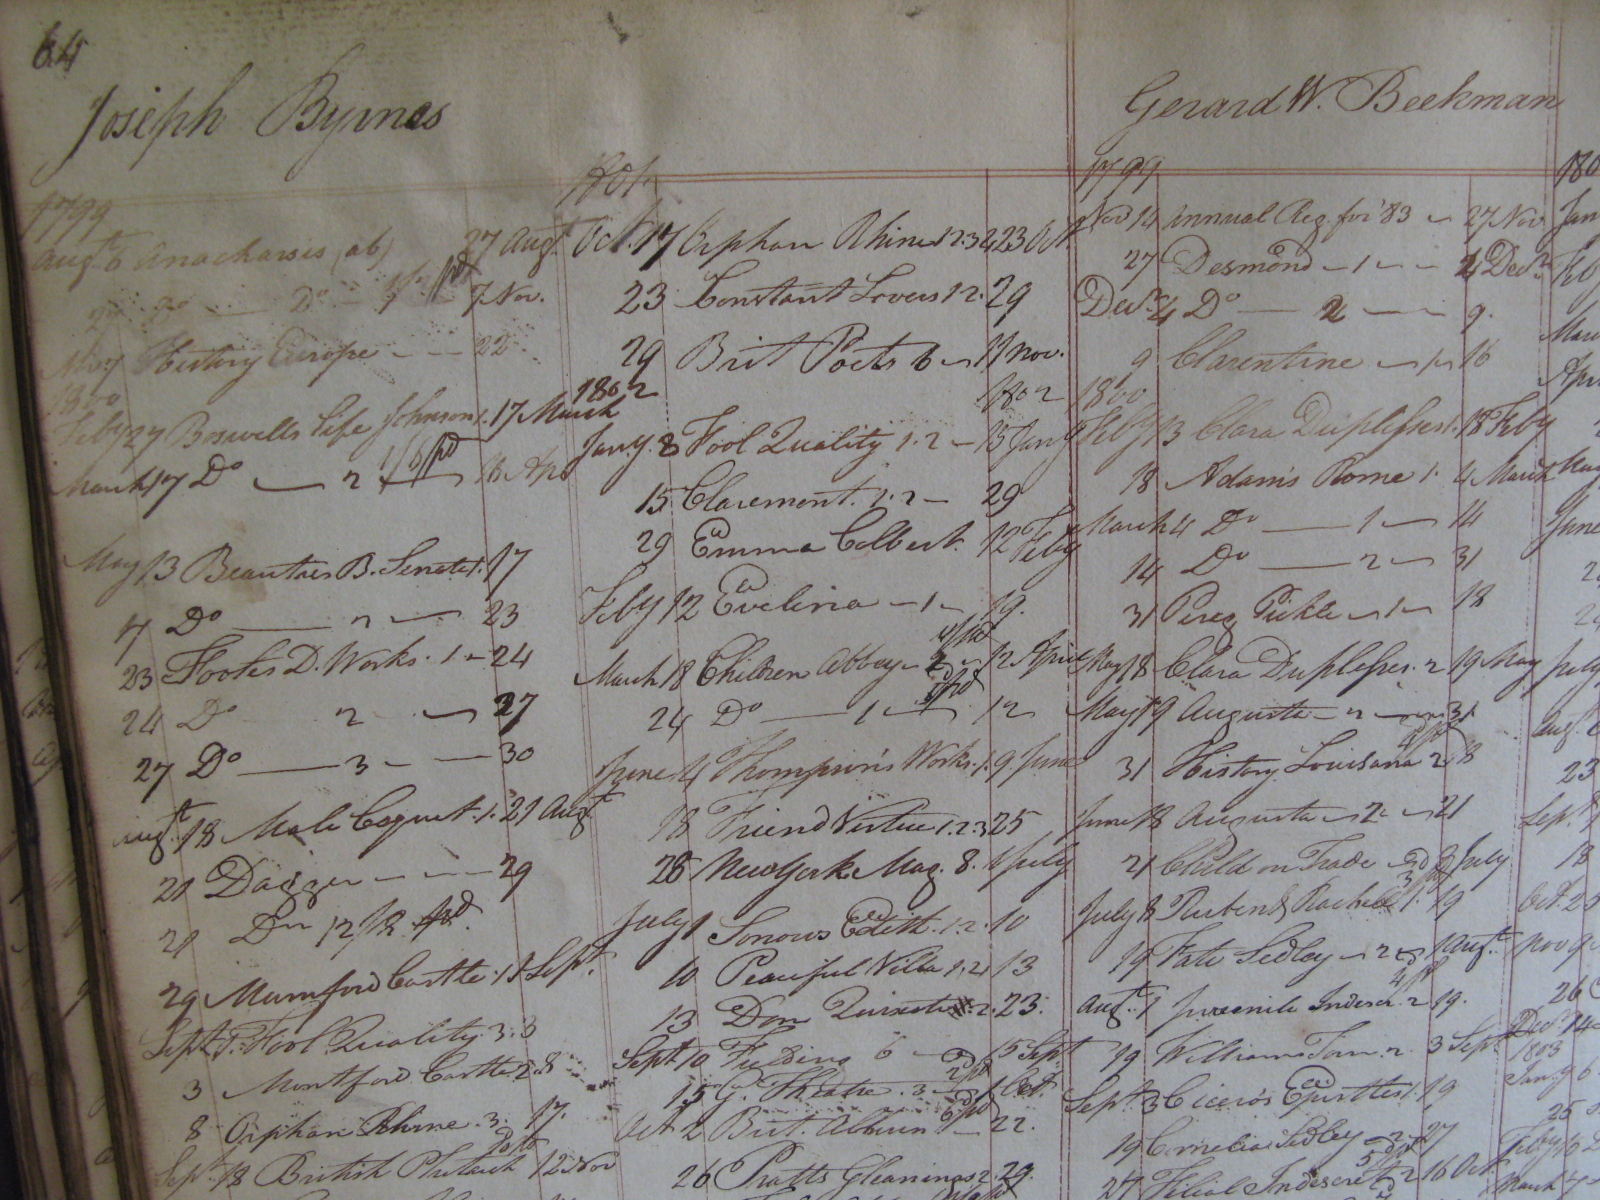 64
Joseph Byrnes
1799
Augt 6 Anacharsis (ab) 27 Augt
Do 7 Nov.
Nov 7 History Europe 22
1800
Feby 27 Boswells Life Johnson 1. 17 March
March 17 Do 2 1/6 pd 18 Ap
May 13 Beauties B. Senate 1. 17
17 Do 2 23
23 Foote's D. Works. 1 24
24 Do 2 27
27 Do 3 30
Augt 18 Male Coquet. 1. 21 Augt
21 Dagger 29
21 Dn 12/8 pd.
29 Mumford Castle. 1 1 Sept.
Sept 1. Fool Quality 3. 3
3 Montford Castle 2. 8
8 Orphan Rhine. 3. 17.
Sepr. 18 British Plutarch 12 Nov
1801.
Oct. 17 Orphan Rhine 1.2.3.4 23 Oct
23 Constant Lovers 1.2. 29
29 Brit Poets 6 11 Nov.
1802 1802
Jany. 8 Fool Quality 1.2 15 Jany
15 Claremont. 1.2 29
29 Emma Colbert. 12 Feby
Feby 12 Evelina 1 19.
March 18 Children Abbey 2 12 April
24 Do 1 12
June 4 Thompson's Works. 1. 9 June
18 Friend Virtue 1.2.3 25
26 New York Mag. 8. 1 July
July 1 Sorrows Edith. 1.2. 10
10 Peaceful Villa 1.2 13
13 Don Quixote 2. 23.
Sept 10 Fielding 6 15 Sept
15 G. Theatre. 3 1 Oct.
Oct 2 Brit Album 22.
26 Pratts Gleanings 2. 29.
Gerard W. Beekman
1799
Nov 14 Annual Reg. for '83 27 Nov
27 Desmond 1 4 Decr.
Decr. 4 Do 2 9.
9 Clarentine 1 16
1800
Feby 13 Clara Duplessis 1. 18 Feby
18 Adam's Rome 1. 4 March
March 4 Do 1 14
14 Do 2 31
31 Pereg Pickle 1 18
May 18 Clara Duplessis. 2 19 May
May 19 Augusta 2 31
31 History Louisiana 2 8
June 18 Augusta 2 21
21 Child on Trade 8 July
July 8 Ruben & Rachel 1. 19
19 Fate Sedley 2 1 Augt.
Augt. 1 Juvenile Indescr. 2 19.
19 Williams Tour. 2. 3 Sept
Sept. 3 Cicero's Epistles 1. 19
19 Cornelia Sedley 27
27 Filial Indiscret. 2 16 Oct
180
Jan
Feb
Mar
Apr
May
June
July
Augt
23
Sept.
18
Oct. 20
Nov 9
26
Decr. 14
1803
Jany 6
25
Feby 10
March